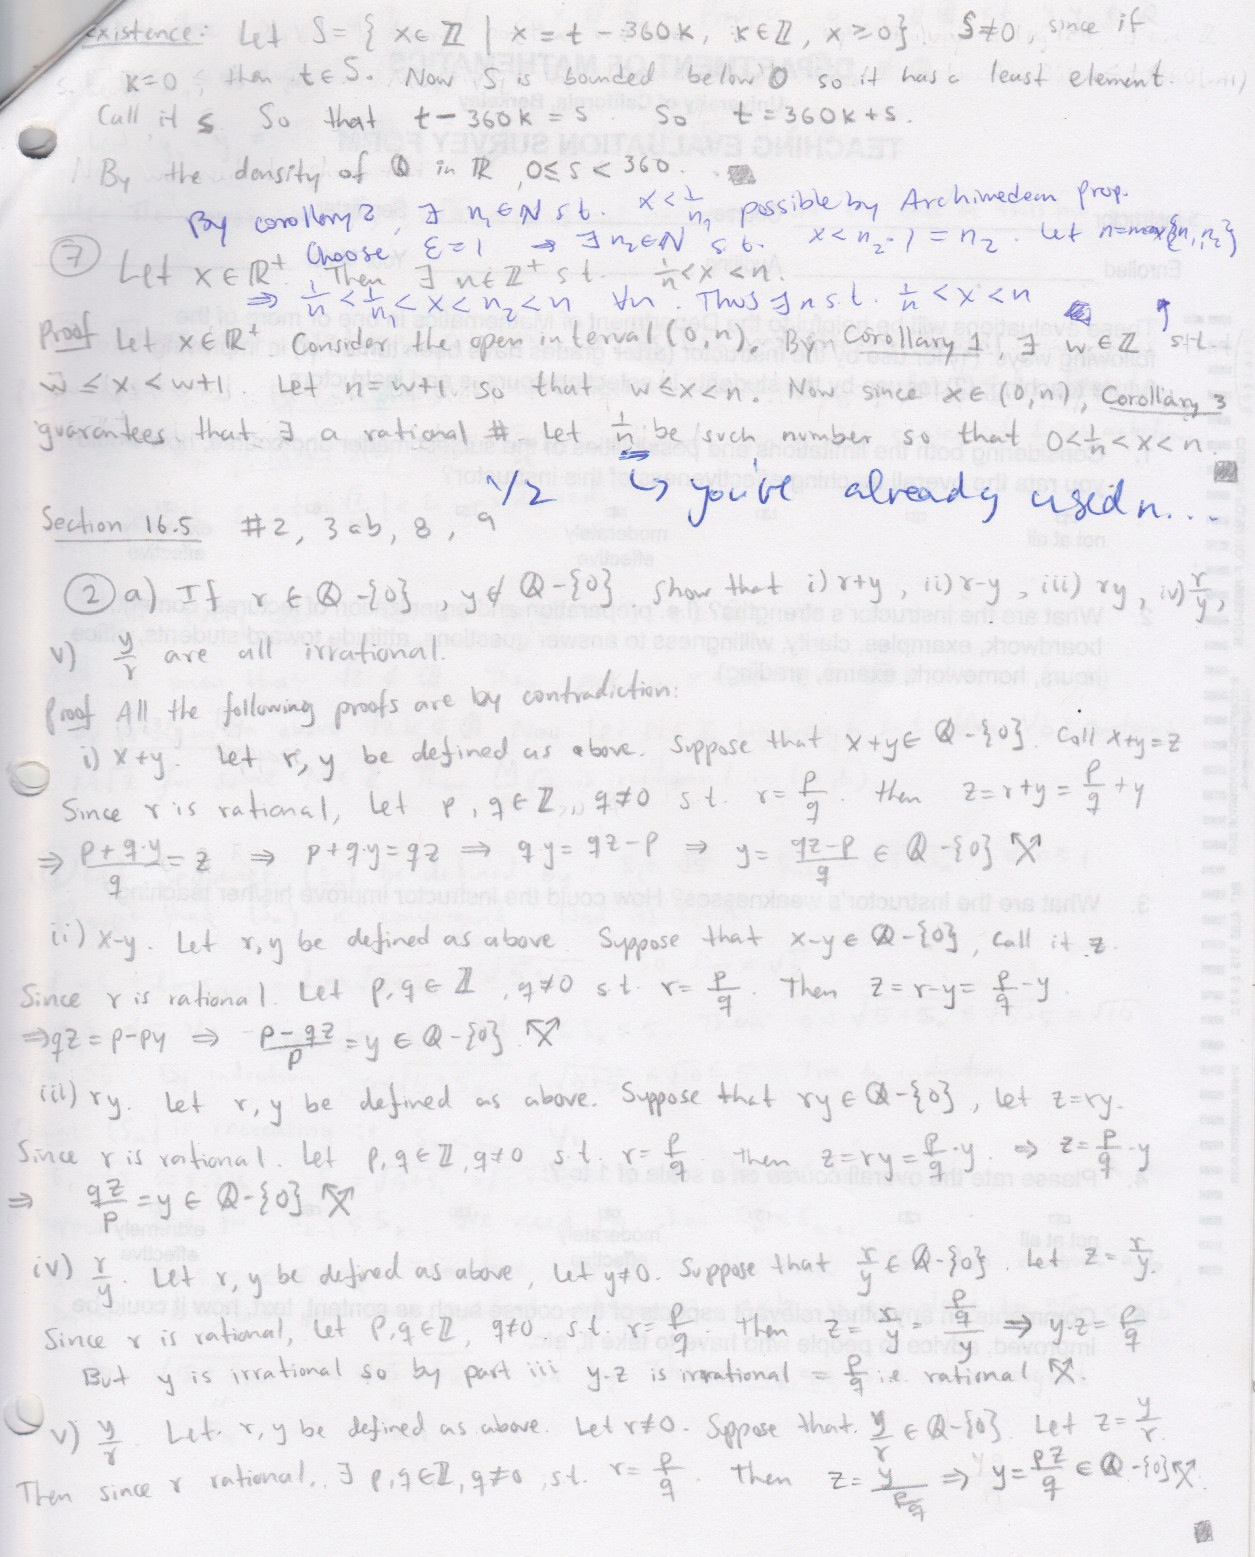 existence: Let S = { x∈ℤ | x = t - 360k, k∈ℤ, x ≥ 0} S≠0, since if
k=0 then t∈S. Now S is bounded below 0 so it has a least element.
Call it s So that t-360k = s. So t = 360k+s.
By the density of ℚ in ℝ, 0≤s<360.
By corollary 2, ∃ n₁∈ℕ s.t. x < 1/n₁ possible by Archimedean prop.
Choose ε=1 → ∃ n₂∈ℕ s.t. x<n₂·1 = n₂. Let n=max{n₁,n₂}
⑦ Let x∈ℝ⁺. Then ∃ n∈ℤ⁺ s.t. 1/n<x<n.
⇒ 1/n < 1/n₁ < x < n₂ < n ∀n. Thus ∃ n s.t. 1/n < x < n
Proof Let x∈ℝ⁺ Consider the open interval (0,n). By Corollary 1, ∃ w∈ℤ s.t.
w ≤ x < w+1. Let n=w+1 so that w≤x<n. Now since x∈(0,n), Corollary 3
guarantees that ∃ a rational #. Let 1/n be such number so that 0<1/n<x<n.
1/2 ↳ you've already used n...
Section 16.5 #2, 3ab, 8, 9
② a) If r ∈ ℚ-{0}, y∉ ℚ-{0}. Show that i) r+y, ii) r-y, iii) ry, iv) r/y,
v) y/r are all irrational.
Proof All the following proofs are by contradiction:
i) x+y. Let r, y be defined as above. Suppose that x+y∈ ℚ-{0}. Call x+y=z
Since r is rational, Let p, q∈ℤ, q≠0 s.t. r = p/q. then z=r+y = p/q + y
⇒ (p+q·y)/q = z ⇒ p+q·y=qz ⇒ qy = qz-p ⇒ y = (qz-p)/q ∈ ℚ-{0}
ii) x-y. Let r,y be defined as above Suppose that x-y∈ ℚ-{0}, call it z.
Since r is rational. Let p,q∈ℤ, q≠0 s.t. r = p/q. Then z=r-y = p/q - y
⇒qz = p-py ⇒ (p-qz)/p = y ∈ ℚ-{0}
iii) ry. Let r,y be defined as above. Suppose that ry∈ℚ-{0}, let z=ry.
Since r is rational. Let p,q∈ℤ, q≠0 s.t. r = p/q. Then z=ry = p/q·y. ⇒ z = p/q·y
⇒ qz/p = y∈ ℚ-{0}
iv) r/y. Let r,y be defined as above, let y≠0. Suppose that r/y ∈ ℚ-{0}. Let z = r/y.
Since r is rational, Let p,q∈ℤ, q≠0 s.t. r = p/q. Then z = r/y = (p/q)/y ⇒ y·z = p/q
But y is irrational so by part iii y·z is irrational = p/q i.e. rational
v) y/r Let r,y be defined as above. Let r≠0. Suppose that y/r ∈ ℚ-{0}. Let z = y/r.
Then since r rational, ∃ p,q∈ℤ, q≠0, s.t. r = p/q. Then z = y/(p/q) ⇒ y = pz/q ∈ ℚ-{0}.